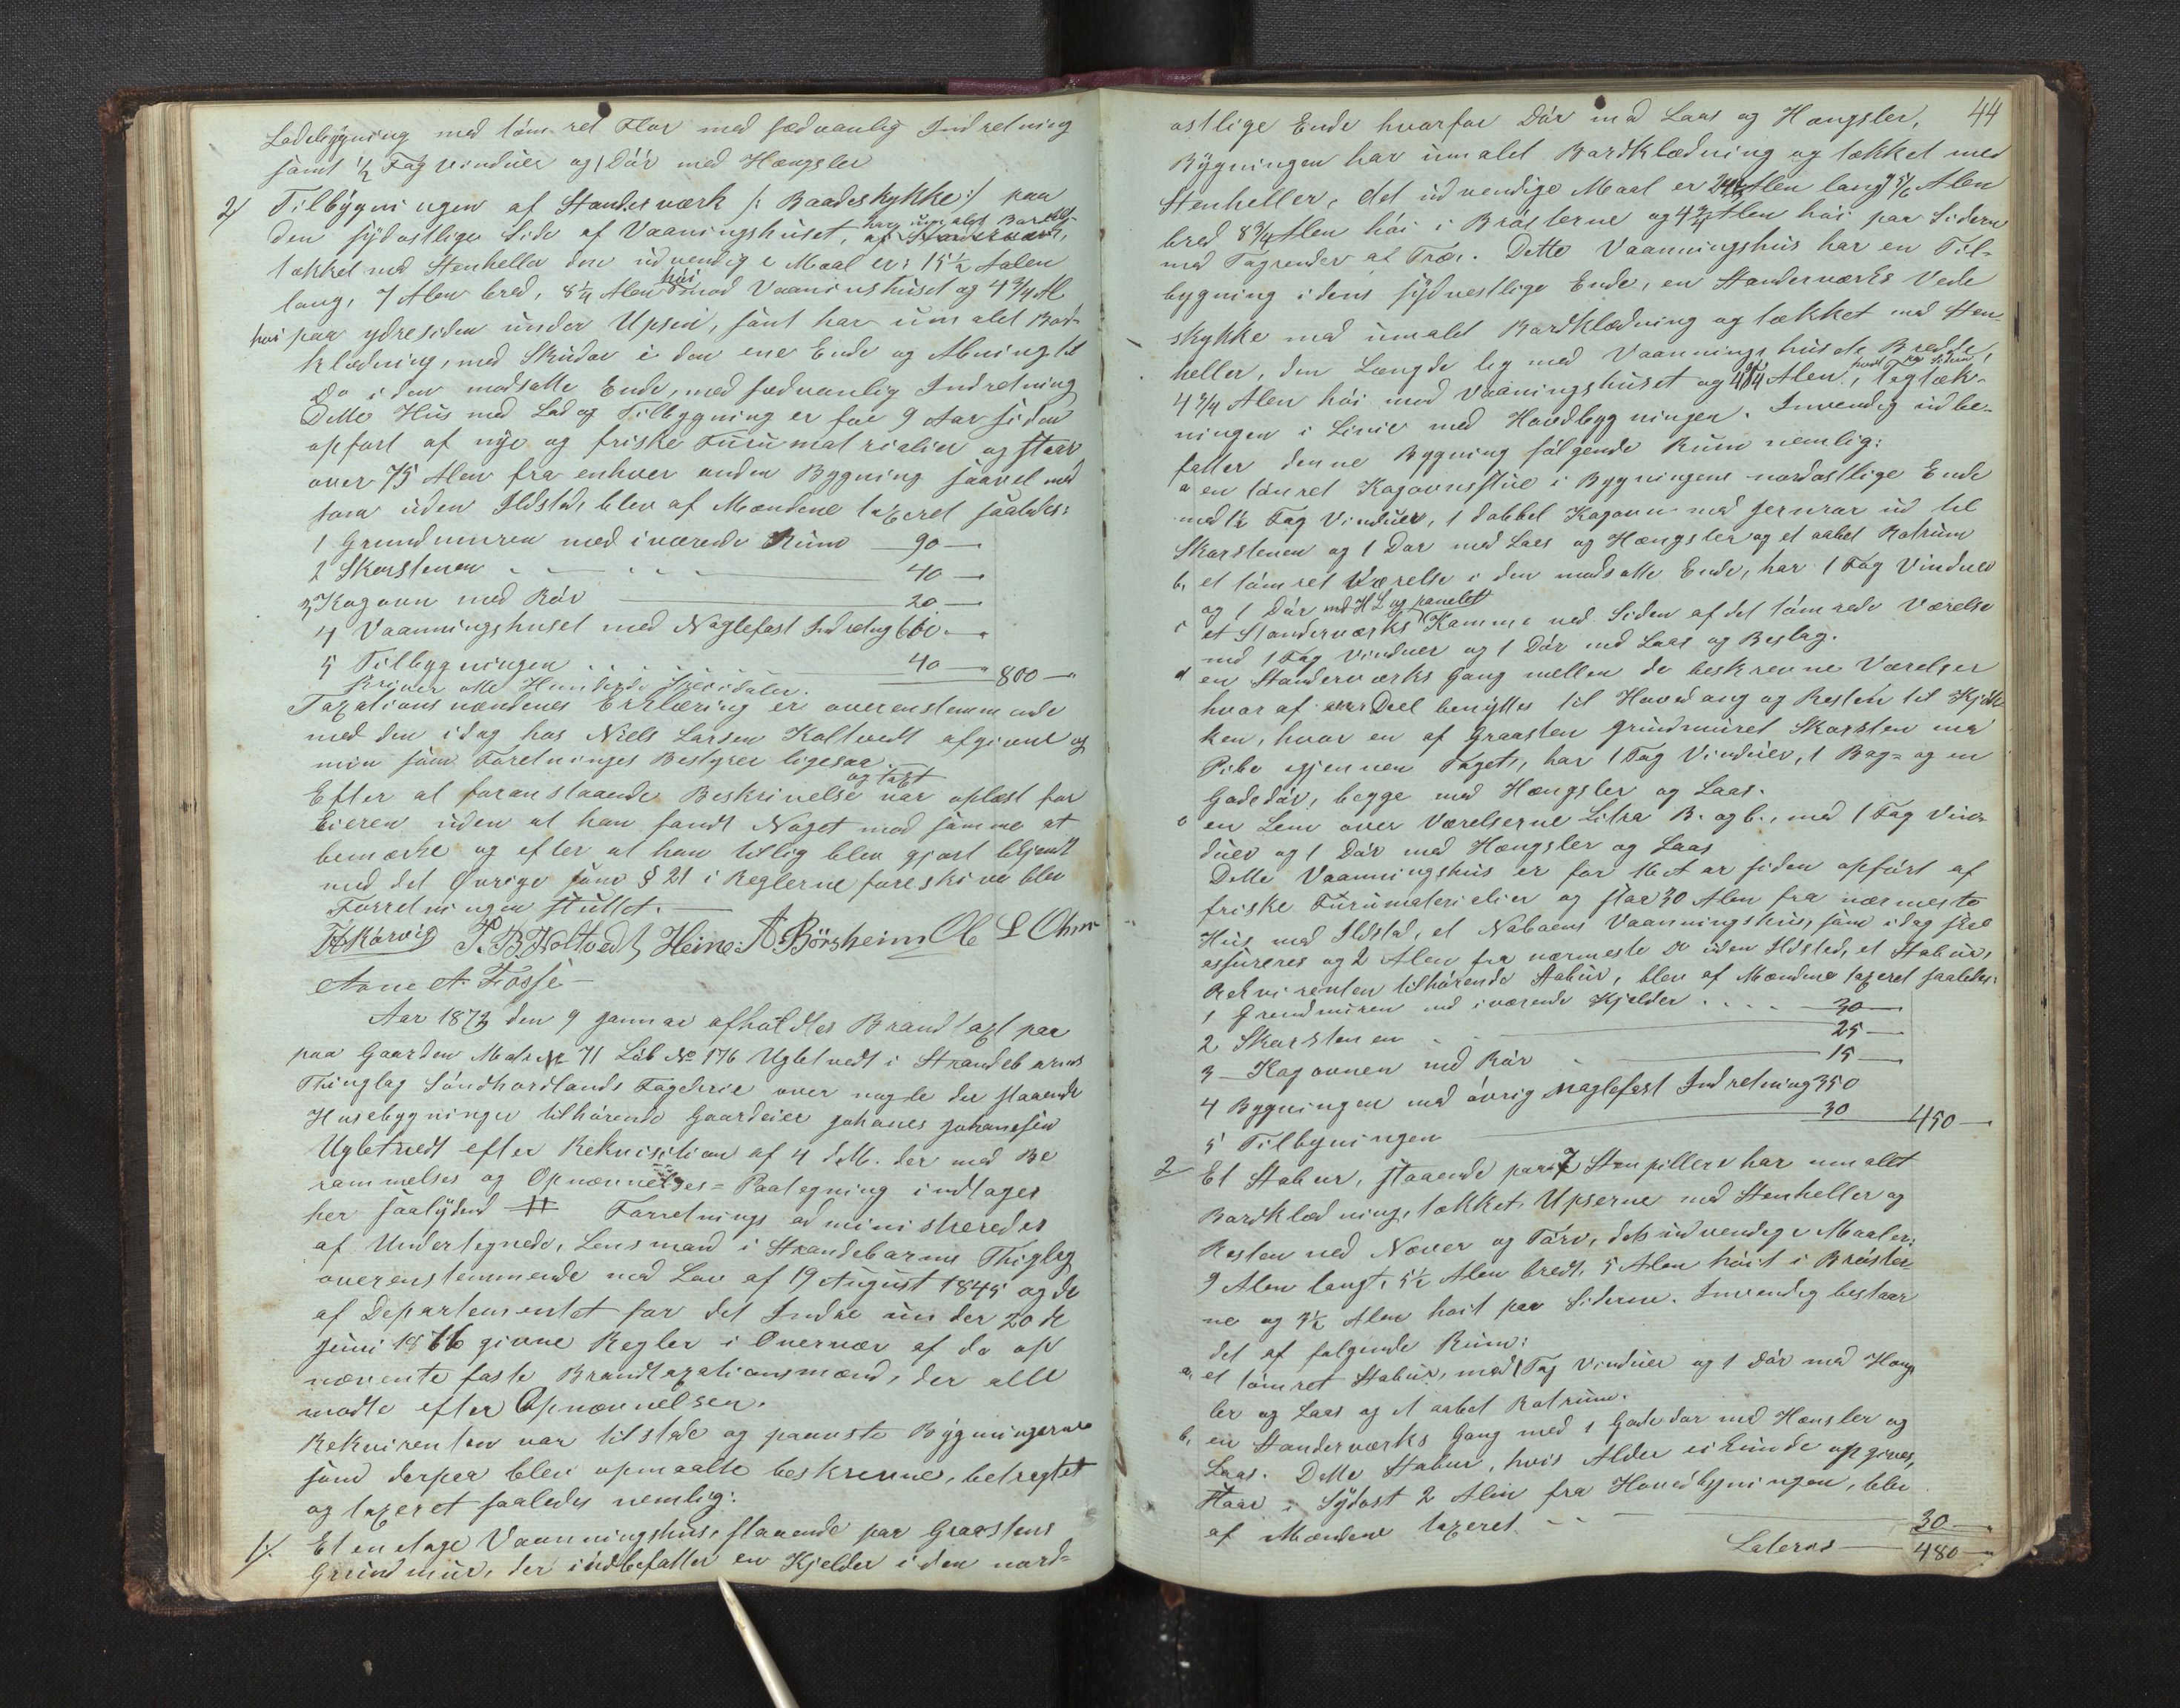 Ladebygning med tømret Flor med sædvanlig Indretning
samt 1/2 Fag vinduer og 1 Dør med Hængsler
2/ Tilbygningen af Standerværk /: Baadeskykke :/ paa
den sydostlige Side af Vaaningshuset, har umalet Bordklædning
tækket med Stenheller den udvendige Maal er: 15 1/2 Aalen
lang, 7 Alen bred, 8 1/4 Alen høi mod Vaaninshuset og 4 3/4 Al
høi paa ydresiden under Upsen, samt har umalet Bord-
klædning, med Skudør i den ene Ende og Abning til
Do i den modsatte Ende, med sædvanlig Indretning
Dette Hus med Lad og Tilbygning er for 9 Aar siden
opført af nye og friske Furumatrialier og staar
over 75 Alen fra enhver anden Bygning saavel med
som uden Ildsted, blev af Mændene taxeret saaledes:
1 Grundmuren med iværende Rum 90 —
2 Skorstenen 40 —
3 Kogovn med Rør 20 —
4 Vaanningshuset med Naglefast Indretng 610 —
5 Tilbygningen 40 — 800 —
skriver otte Hundrede Speciedaler.
Taxationsmændenes Erklæring er overenstemmende
med den idag hos Niels Larsen Koltvedt afgivne og
min som Foretninges Bestyrer ligesaa.
Efter at foranstaaende Beskrivelse og Taxt var oplæst for
Eieren uden at han fandt Noget mod samme at
bemærke og efter at han tillig blev gjort bekjendt
med det Øvrige som § 21 i Reglerne foreskriver blev
Forretningen sluttet. —
Skorvig P. B. Koltvedt Heine A. Börsheim Ole L Ohm
Arne A. Fosse —
Aar 1873 den 9 Januar afholdtes Brandtaxt paa
paa Gaarden Matr № 71 Løb № 176 Ugletvedt i Strandebarms
Thinglag Søndhordlands Fogderie over nogle der staaende
Husebygninger tilhørende Gaardeier Johanes Johanesen
Ugletvedt efter Rekvisition af 4 d. M. der med Be
rammelses og Opnævnelses = Paategning indtages
her saalydend # Forretnings administreredes
af Undertegnede, Lensmand i Strandebarms Thiglag
overenstemmende med Lov af 19 August 1845 og de
af Departementet for det Indre under 20de
Juni 1866 givne Regler i Overvær af de op
nævnte faste Brandtaxationsmænd, der alle
mødte efter Opnævnelsen.
Rekvirenten var tilstede og paaviste Bygningerne
som derpaa blev opmaalte beskrevne, betragtet
og taxeret saaledes nemlig:
1/. Et en etage Vaanningshus, staaende paa Graastens
Grundmur, der indbefatter en Kjelder i den nord=
44
ostlige Ende hvorfor Dør med Laas og Hængsler,
Bygningen har umalet Bordklædning og tækket med
Stenheller, det udvendige Maal er Alen lang 9 5/6 Alen
bred 8 3/4 Alen høi i Brøsterne og 4 3/4 Alen høi paa Siderne
med Tagrender af Træ. Dette Vaanningshus har en Til-
bygning i dens sydvestlige Ende, en Standerværks Vede
skykke med umalet Bordklædning og tækket med Sten-
heller, den Længde lig med Vaannings husets Bredde,
4 3/4 Alen høi mod Vaaningshuset og Alen, tagtæk-
ningen i Linie med Hovedbygningen. Invendig indbe-
fatter denne Bygning følgende Rum nemlig:
a en tømret Kogovnsstue i Bygningens nordostlige Ende
med 1/2 Fag Vinduer, 1 dobbel Kogovn med Jernrør ud til
Skorstenen og 1 Dør med Laas og Hængsler og et aabet Rotrum
b, et tømret Værelse i den modsatte Ende, har 1 Fag Vinduer
og 1 Dør med H L og panelet
c et Standerværks Kammer ved Siden af det tømrede Værelse
med 1 Fag Vinduer og 1 Dør med Laas og Beslag.
d en Standerværks Gang mellem de beskrevne Værelser
hvoraf en Deel benyttes til Hovedgang og Resten til Kjøk
ken, hvor en af Graasten grundmuret Skorsten med
Pibe igjennem Taget, har 1 Fag Vinduer, 1 Bag= og en
Gadedør, begge med Hængsler og Laas.
e en Lem over Værelserne Litra B. og b., med 1 Fag Vin-
duer og 1 Dør med Hængsler og Laas
Dette Vaanningshus er for 16 Aar siden opført af
friske Furumaterialier og staar 30 Alen fra nærmeste
Hus med Ildsted, et Naboens Vaanningshus, som idag skal
assureres og 2 Alen fra nærmeste Do uden Ildsted, et Stabur,
Rekvirenten tilhørende Stabur, blev af Mændene taxeret saaledes:
1 Grundmuren med iværende Kjelder 30 —
2 Skorstenen 25 —
3 Kogovnen med Rør 15 —
4 Bygningen med øvrig naglefast Indretning 350
5 Tilbyningen 30 450 —
2 Et Stabur, staaende paa 7 Stenpillere har umallet
Bordklædning, tækket Upserne med Stenheller og
Resten med Næver og Törv, dets udvendige Maal er:
9 Alen langt, 5 1/2 Alen bredt, 5 Alen høit i Brøster-
ne og 3 1/2 Alen høit paa Siderne. Invendig bestaar
det af følgende Rum:
a, et tømret Stabur, med 1 Fag Vinduer og 1 Dør med Hæng
ler og Laas og et aabet Rotrum.
b, en Standerværks Gang med 1 Gadedør med Hænsler og
Laas. Dette Stabur, hvis Alder ei kunde opgives,
staar i Sydost 2 Alen fra Hovedbyningen, blev
af Mændene taxeret 30 —
Lateres 480 —